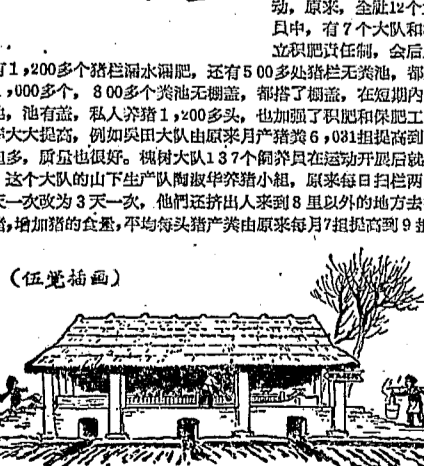 动，原来，全社12个
员中，有7个大队和
立积肥责任制，会后
有1，200多个猪栏漏水漏肥，还有500多处猪栏无粪池，都
，000多个，800多个粪池无棚盖，都搭了棚盖，在短期内
，池有盖，私人养猪1，200多头，也加强了积肥和保肥工
大大提高，例如吳田大队由原来月产猪粪6，031担提高到
担多，质量也很好。槐树大队137个飼养员在运动开展后就
这个大队的山下生产队陶淑华养猪小組，原来每日扫栏两
天一次改为3天一次，他們还挤出人来到8里以外的地方去
，增加猪的食量，平均每头猪产粪由原来每月7担提高到9担
（伍觉插画）